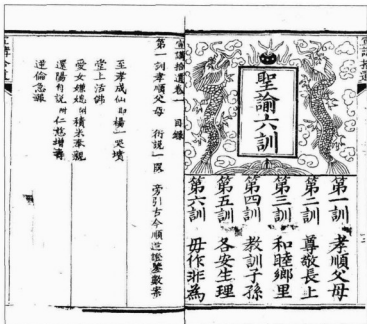 聖諭六訓
第一訓 孝順父母
第二訓 尊敬長上
第三訓 和睦鄉里
第四訓 教訓子孫
第五訓 各安生理
第六訓 毋作非為
宣講拾遺卷一 目錄
第一訓孝順父母 衍說一段 旁引古今順逆證鑒數案
至孝成仙 即楊一哭墳
堂上活佛
愛女嫌媳 附積米奉親
還陽自說 附仁慈增壽
逆倫急報